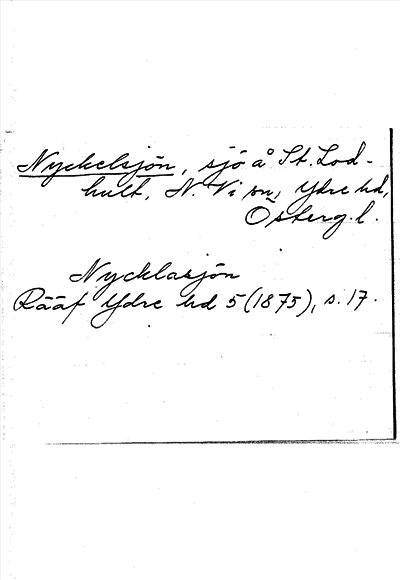 Nyckelsjön, sjö å St. Lod-
hult, N. Vi sn, Ydre hd,
Österg. l.
Nycklasjön
Rääf Ydre hd 5 (1875), s. 17.